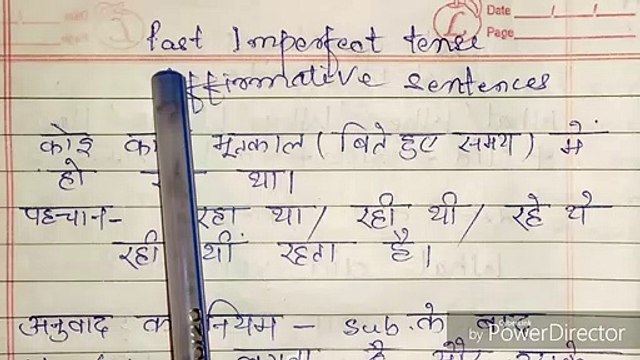 Date
Page
Past Imperfect tense
Affirmative sentences
कोइ भूतकाल ( बिते हुए समय ) में
हो था।
पहचान- रहा था / रही थी / रहे थे
रही थीं रहता है।
अनुवाद का नियम - sub. के बाद
by PowerDirector